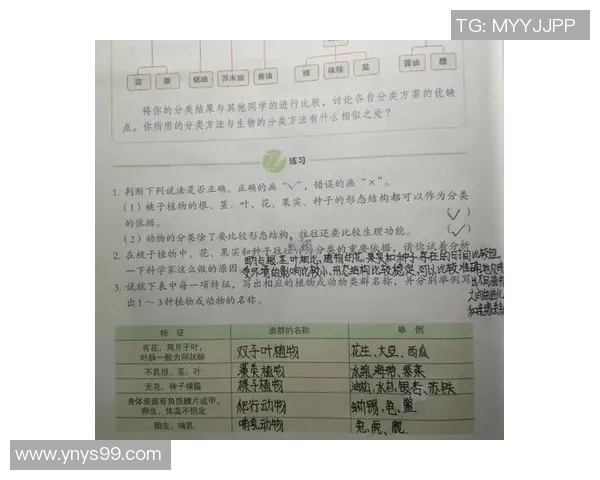 TG: MYYJJPP
蒜 姜 蚝油 芥末油 香油 糖 味精 盐 酱油 醋
将你的分类结果与其他同学的进行比较，讨论各自分类方案的优缺
点。你所用的分类方法与生物的分类方法有什么相似之处？
练习
1. 判断下列说法是否正确。正确的画“√”，错误的画“×”。
（1）被子植物的根、茎、叶、花、果实、种子的形态结构都可以作为分类
的依据。 （√）
（2）动物的分类除了要比较形态结构，往往还要比较生理功能。 （√）
2. 在被子植物中，花、果实和种子往往作为分类的重要依据，请你试着分析
一下科学家这么做的原因。
即与根茎叶相比，植物的花、果实和种子存在的时间比较短，
受环境的影响比较小，形态结构比较稳定，可以比较准确地反映
3. 试就下表中每一项特征，写出相应的植物或动物类群名称，并分别举例写
出1～3种植物或动物的名称。
特 征 类群的名称 举 例
有花，两片子叶，
叶脉一般为网状脉 双子叶植物 花生、大豆、西瓜
不具根、茎、叶 藻类植物 水绵、海带、紫菜
无花，种子裸露 裸子植物 油松、水杉、银杏、苏铁
身体表面有角质鳞片或甲，
卵生，体温不恒定 爬行动物 龟、鳖
胎生，哺乳 哺乳动物 兔、虎、鹿
www.ynys99.com